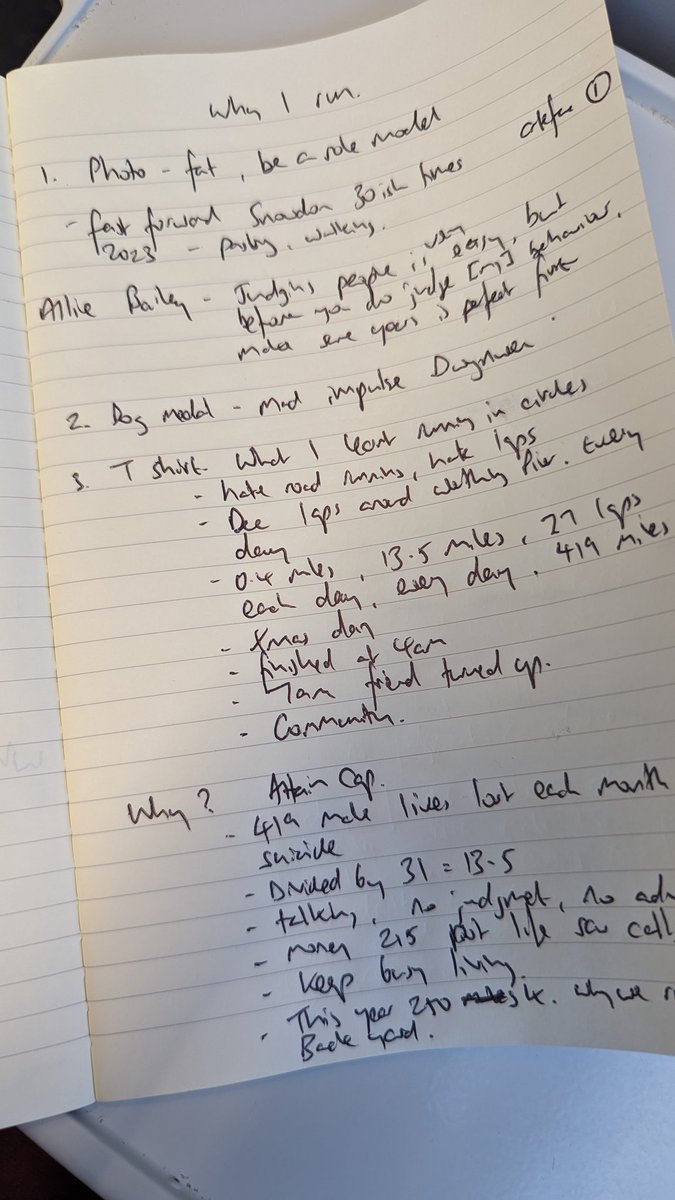 Why I run.
①
1. Photo - fat, be a role model
- fast forward Snowdon 30ish times
2023 - parking, walking.
Allie Bailey - Judging people is very easy, but
before you do judge [my] behaviour,
make sure yours is perfect first
2. Dog medal - mad impulse
3. T shirt. What I learnt running in circles
- hate road running, hate laps
- Dec laps around Pier. Every
day
- 0.4 miles, 13.5 miles, 27 laps
each day, every day, 419 miles
- Xmas day
- finished at 4am
- 7am friend turned up.
- Community.
Why? Cap.
- 419 male lives lost each month
suicide
- Divided by 31 = 13.5
- talking, no judgment, no
- money 215 life call
- Keep busy living.
- This year 250 k. why we
Back Yard.